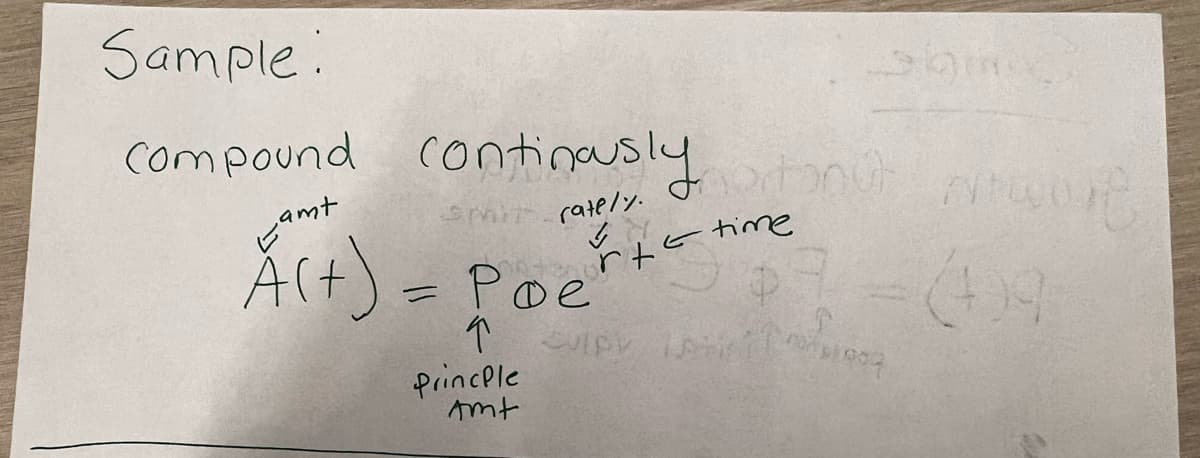 Sample:
compound continously
amt
rate/%.
A(t) = P0e^rt ← time
↑
princple
Amt